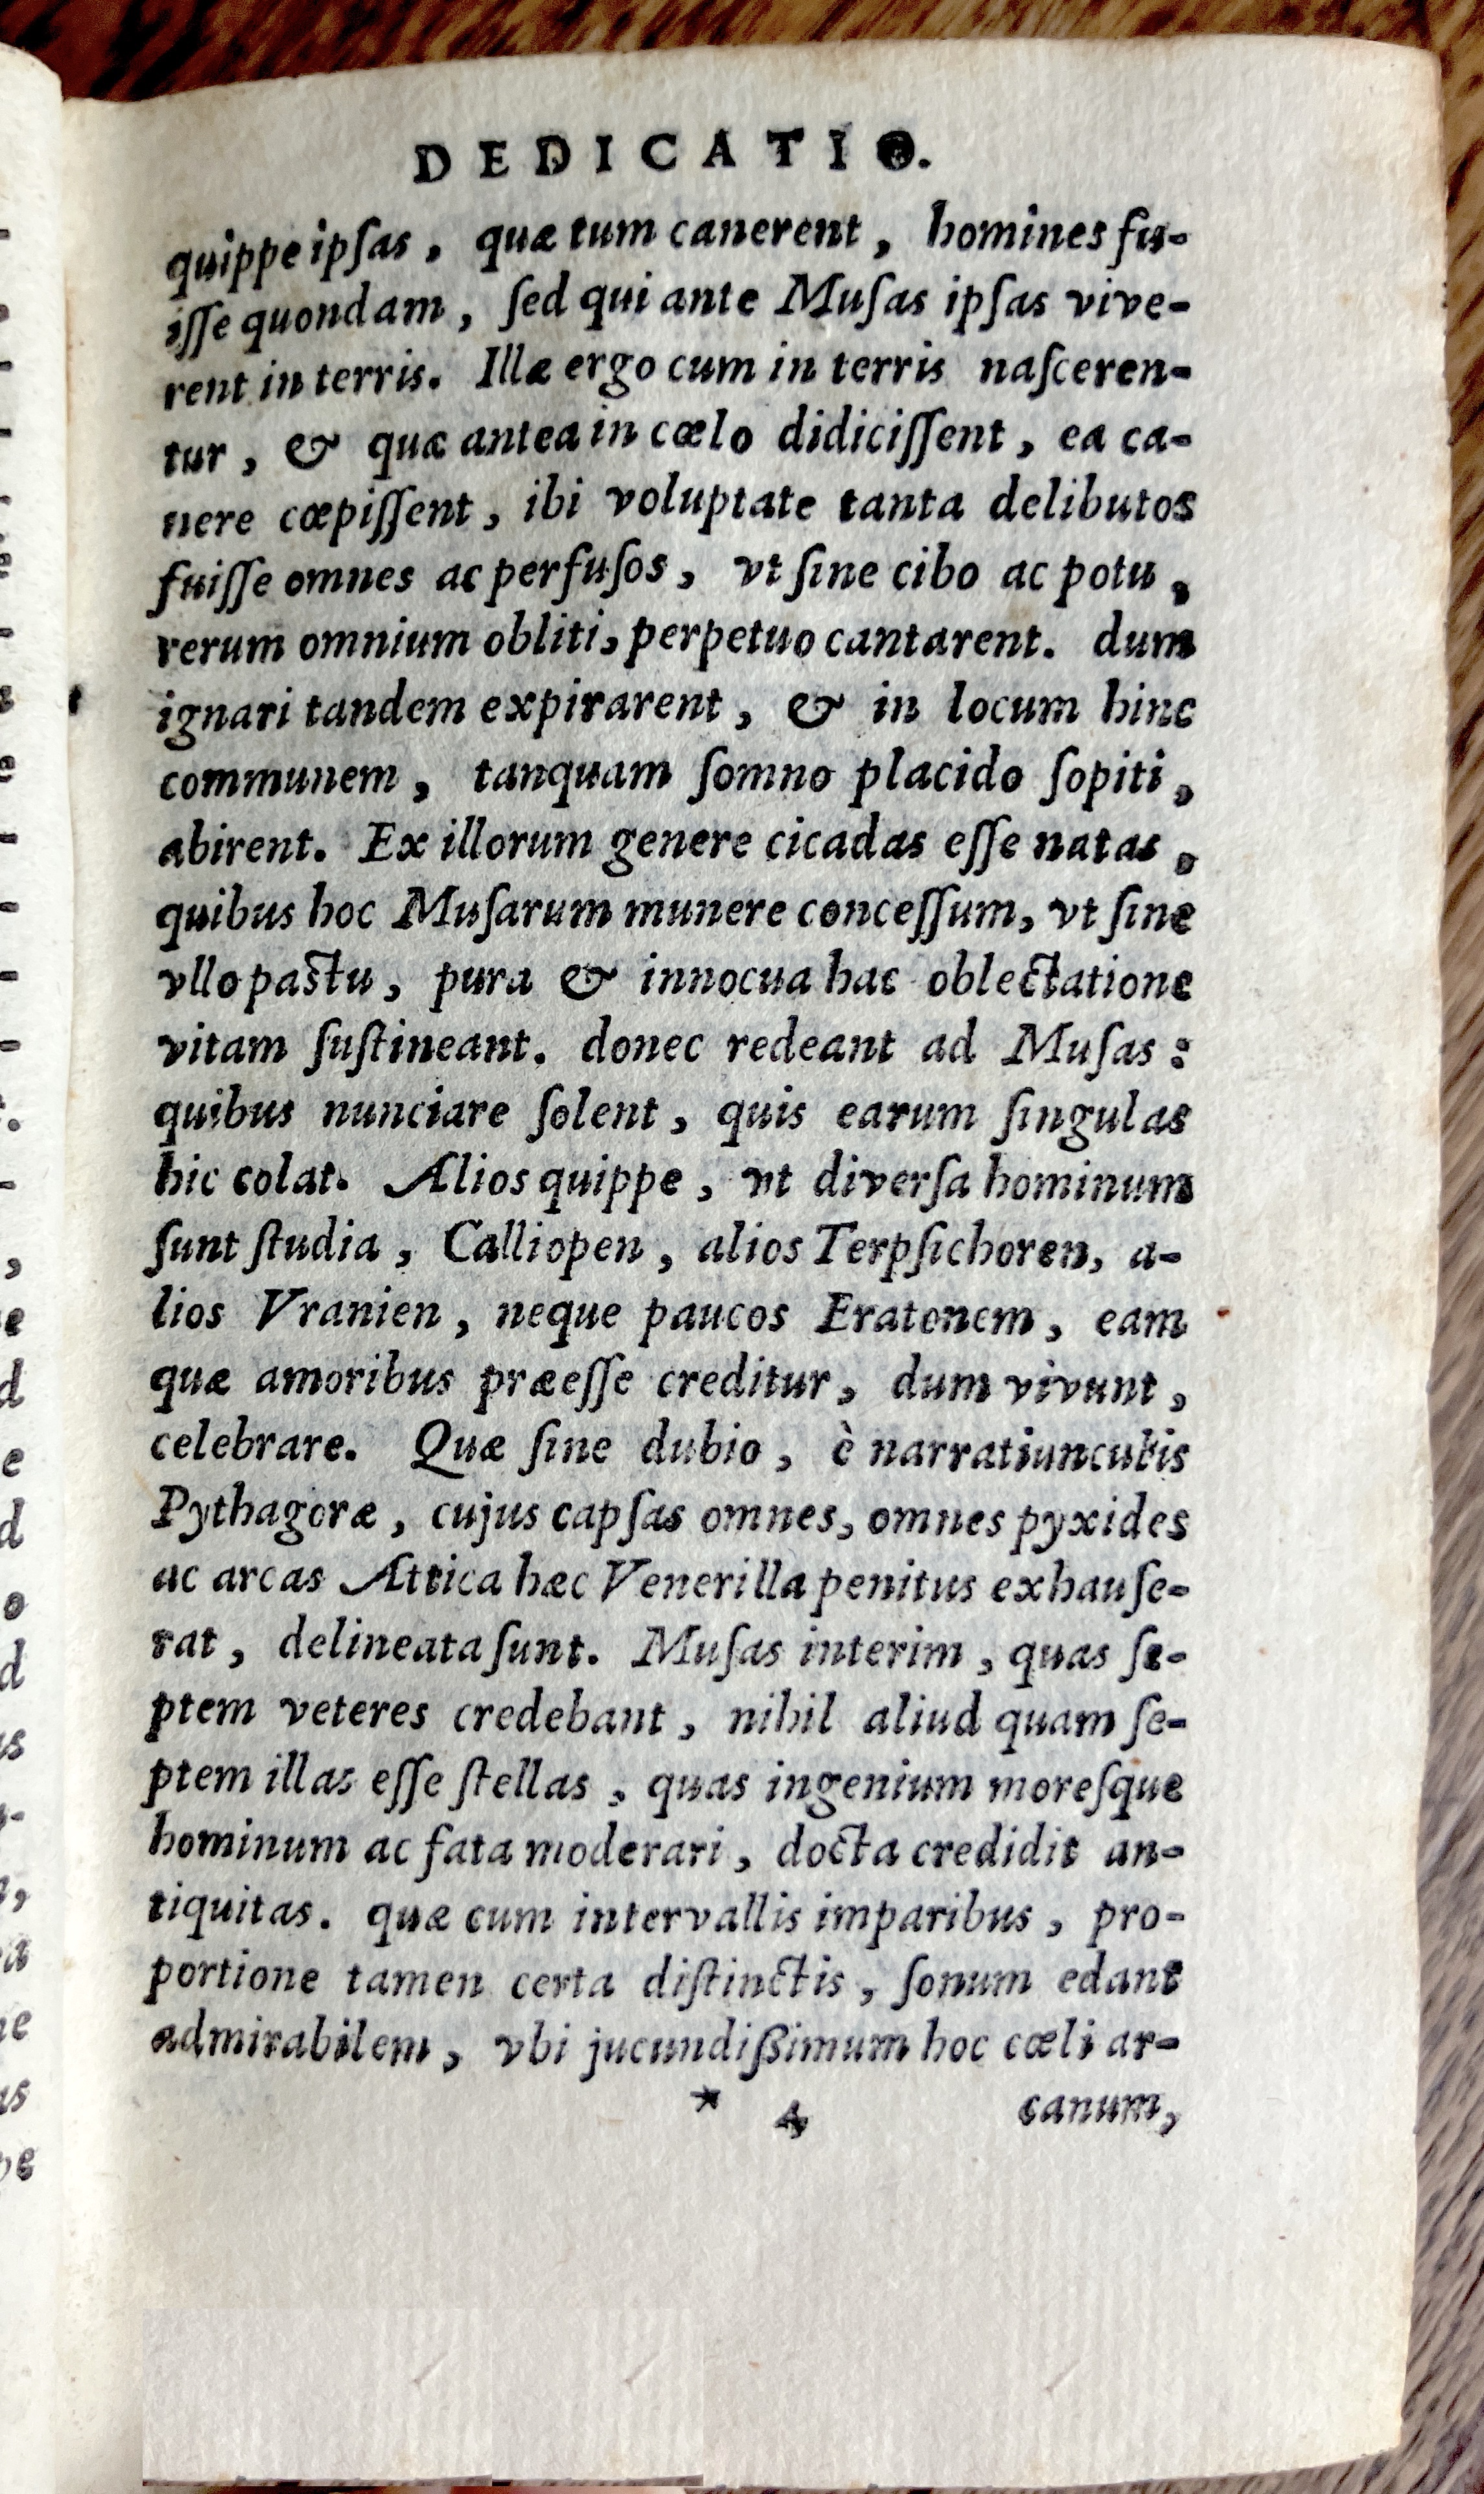 DEDICATIO.
quippe ipſas, quæ tum canerent, homines fu-
iſſe quondam, ſed qui ante Muſas ipſas vive-
rent in terris. Illæ ergo cum in terris naſceren-
tur, & quæ antea in cœlo didiciſſent, ea ca-
nere cœpiſſent, ibi voluptate tanta delibutos
fuiſſe omnes ac perfuſos, vt ſine cibo ac potu,
rerum omnium obliti, perpetuo cantarent. dum
ignari tandem expirarent, & in locum hinc
communem, tanquam ſomno placido ſopiti,
abirent. Ex illorum genere cicadas eſſe natas,
quibus hoc Muſarum munere conceſſum, vt ſine
vllo paſtu, pura & innocua hac oblectatione
vitam ſuſtineant. donec redeant ad Muſas:
quibus nunciare ſolent, quis earum ſingulas
hic colat. Alios quippe, vt diverſa hominum
ſunt ſtudia, Calliopen, alios Terpſichoren, a-
lios Vranien, neque paucos Eratonem, eam
quæ amoribus præeſſe creditur, dum vivunt,
celebrare. Quæ ſine dubio, è narratiunculis
Pythagoræ, cujus capſas omnes, omnes pyxides
ac arcas Attica hæc Venerilla penitus exhauſe-
rat, delineata ſunt. Muſas interim, quas ſe-
ptem veteres credebant, nihil aliud quam ſe-
ptem illas eſſe ſtellas, quas ingenium moreſque
hominum ac fata moderari, docta credidit an-
tiquitas. quæ cum intervallis imparibus, pro-
portione tamen certa diſtinctis, ſonum edant
admirabilem, vbi jucundißimum hoc cœli ar-
* 4 canum,